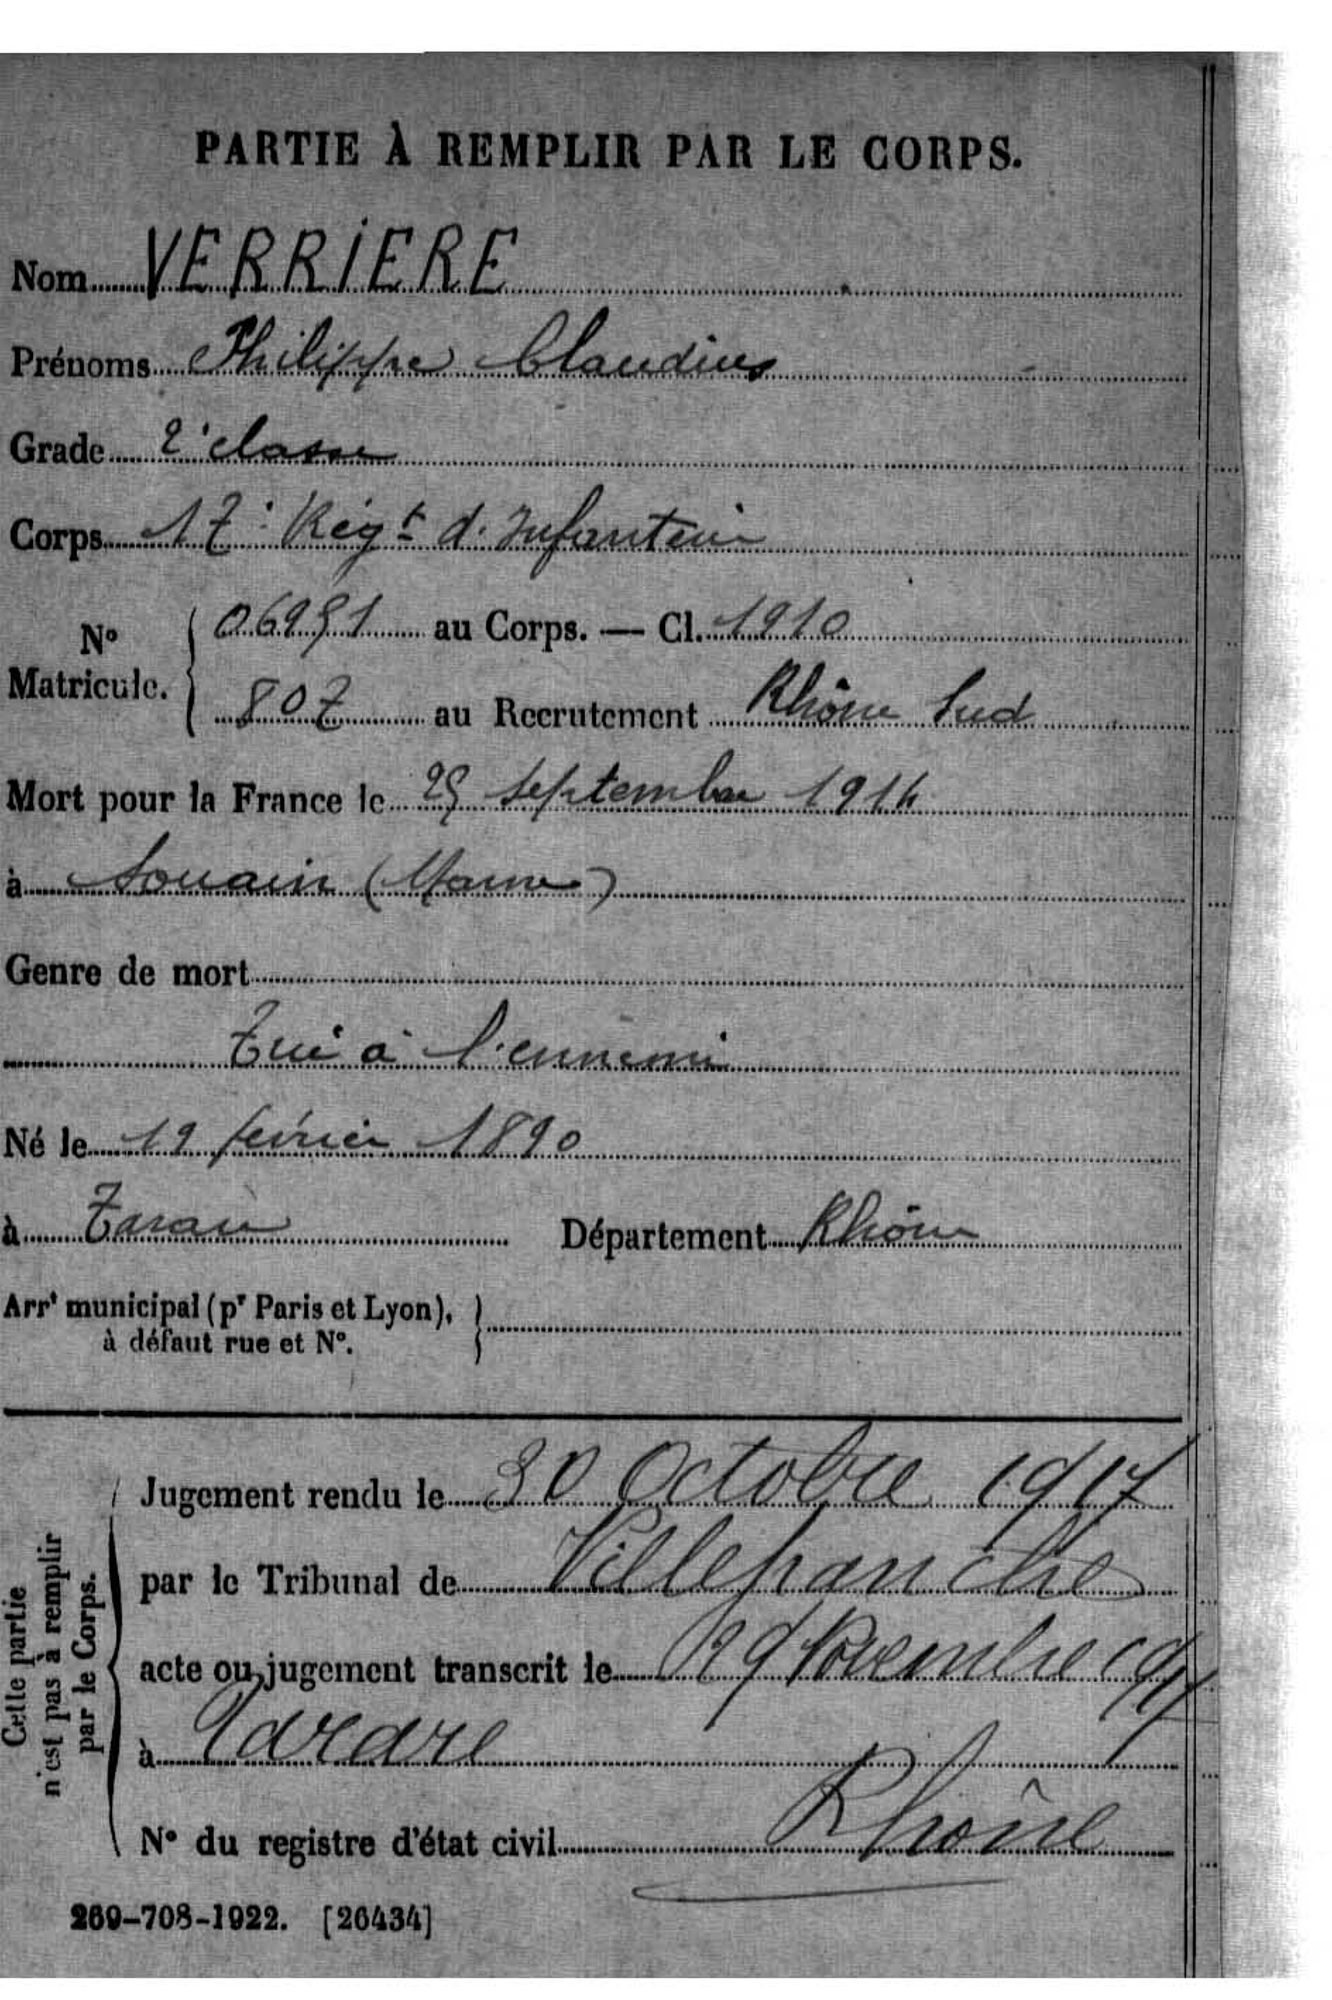 PARTIE À REMPLIR PAR LE CORPS.
Nom VERRIERE
Prénoms Philippe Claudius
Grade 2e classe
Corps 17e Régt d'Infanterie
No Matricule. 06951 au Corps. — Cl. 1910
807 au Recrutement Rhône Sud
Mort pour la France le 25 septembre 1914
à Souain (Marne)
Genre de mort
Tué à l'ennemi
Né le 19 février 1890
à Tarare Département Rhône
Arrt municipal (pr Paris et Lyon),
à défaut rue et No.
Cette partie n'est pas à remplir par le Corps.
Jugement rendu le 30 Octobre 1917
par le Tribunal de Villefranche
acte ou jugement transcrit le 29 Novembre 1917
à Tarare
No du registre d'état civil Rhône
269-708-1922. [26434]